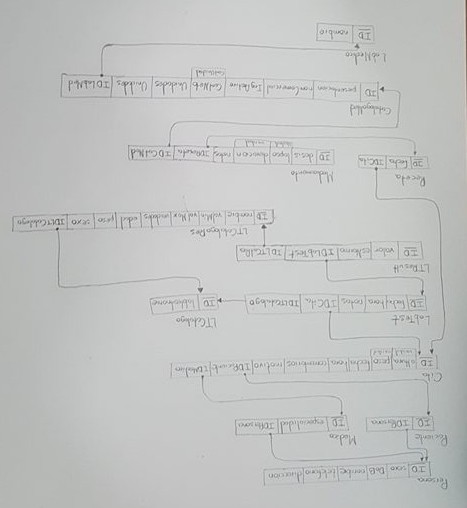 Persona
ID sexo DoB nombre telefono direccion
Paciente Médico
ID IDPersona ID especialidad IDPersona
Cita
ID altura peso fecha hora comentarios motivo IDPaciente IDMedico
unidad unidad
LabTest LTCatalogo
ID fecha hora notas IDCita IDLTCatalogo ID labtestname
LTResult
ID valor esNormal IDLabTest IDLTCatRes
LTCatalogoRes
ID nombre valMin valMax unidades edad peso sexo IDLTCatalogo
Receta Medicamento
ID fecha IDCita ID dosis lapso duracion notas IDReceta IDCatMed
unidad unidad
CatalogoMed
ID presentacion nomComercial IngActivo ContNeto Unidades Unidades IDLabMed
ContUnidad
LabMedico
ID nombre